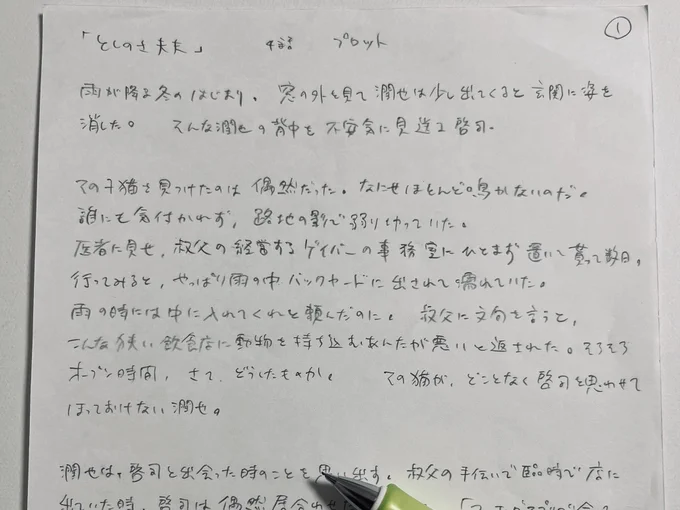 ①
「としのさ夫夫」 4話 プロット
雨が降る冬のはじまり。窓の外を見て潤也は少し出てくると玄関に姿を
消した。 そんな潤也の背中を不安気に見送る啓司。
その子猫を見つけたのは偶然だった。なにせほとんど鳴かないのだ。
誰にも気付かれず、路地の影で弱りきっていた。
医者に見せ、叔父の経営するゲイバーの事務室にひとまず置いて貰って数日。
行ってみると、やっぱり雨の中バックヤードに出されて濡れていた。
雨の時には中に入れてくれと頼んだのに。 叔父に文句を言うと、
こんな狭い飲食店に動物を持ち込むあんたが悪いと返された。そろそろ
オープン時間、さて、どうしたものか。 その猫が、どことなく啓司を思わせて
ほっておけない潤也。
潤也は、啓司と出会った時のことを思い出す。叔父の手伝いで臨時で店に
出ていた時、啓司は偶然居合わせ